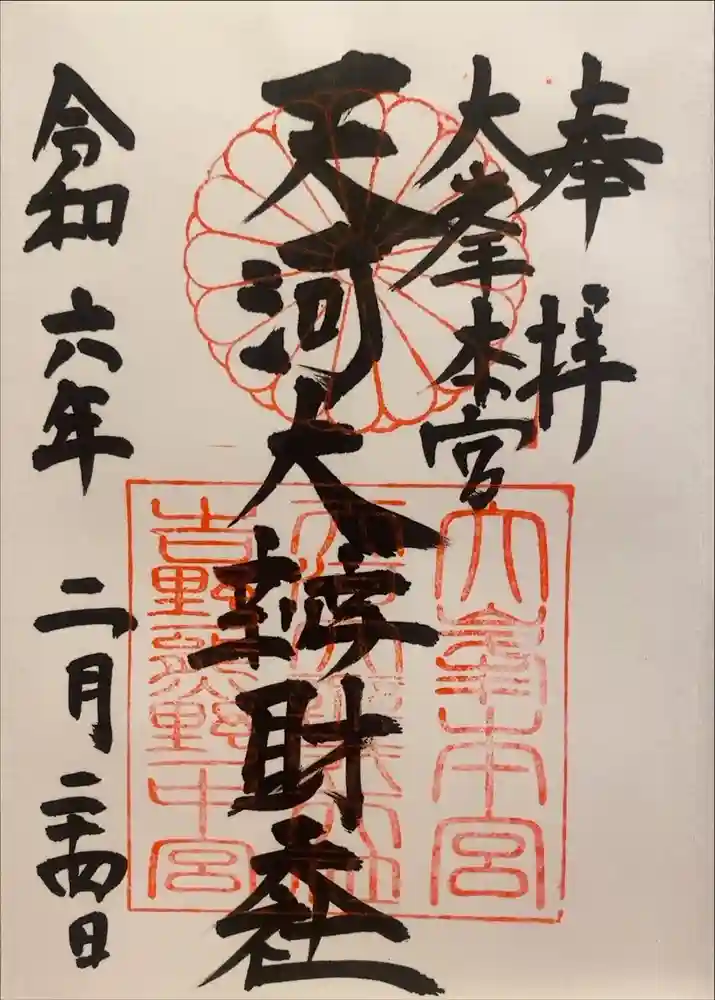 奉拝
大峯本宮
天河大辨財天社
令和六年 二月二十四日
大峯本宮
天河大辨財天社
吉野熊野中宮